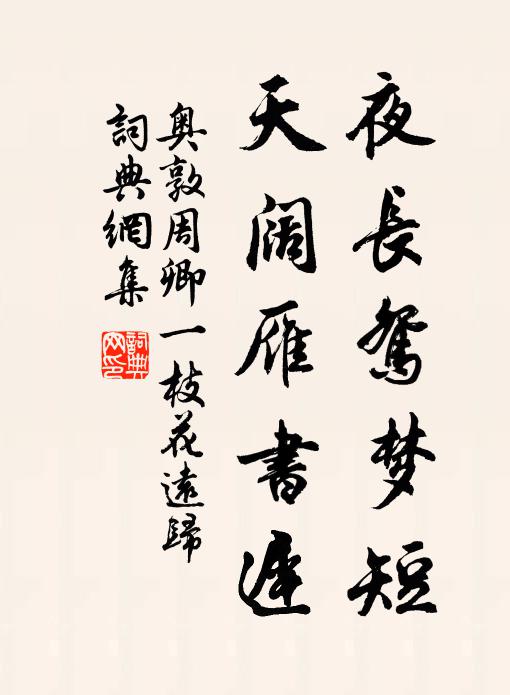 夜長鴛梦短
天阔雁書遲
奥敦周卿一枝花遠歸
詞典網集
詞典
网印